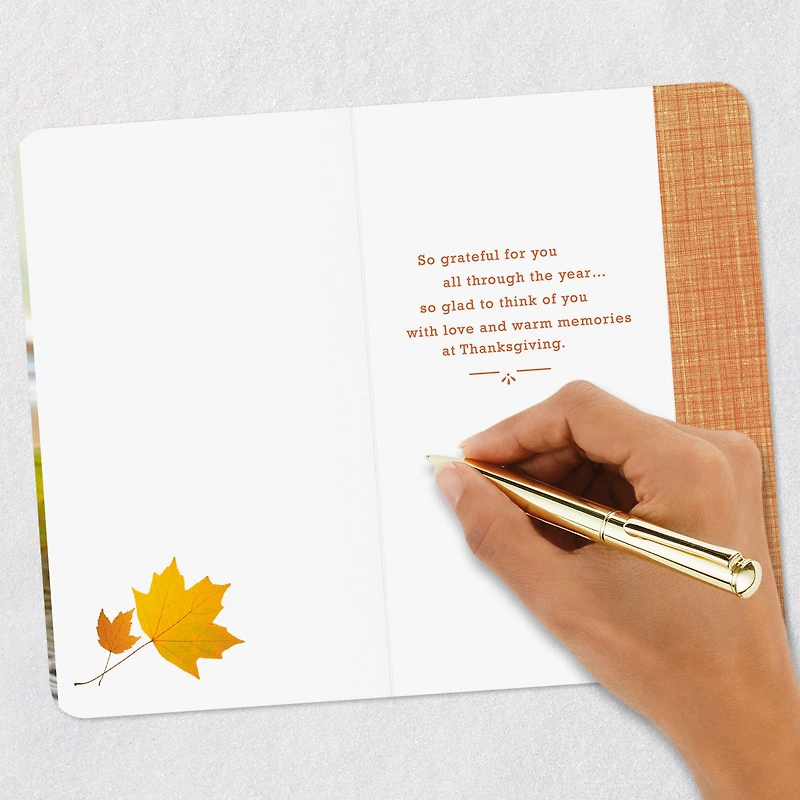 So grateful for you
all through the year...
so glad to think of you
with love and warm memories
at Thanksgiving.